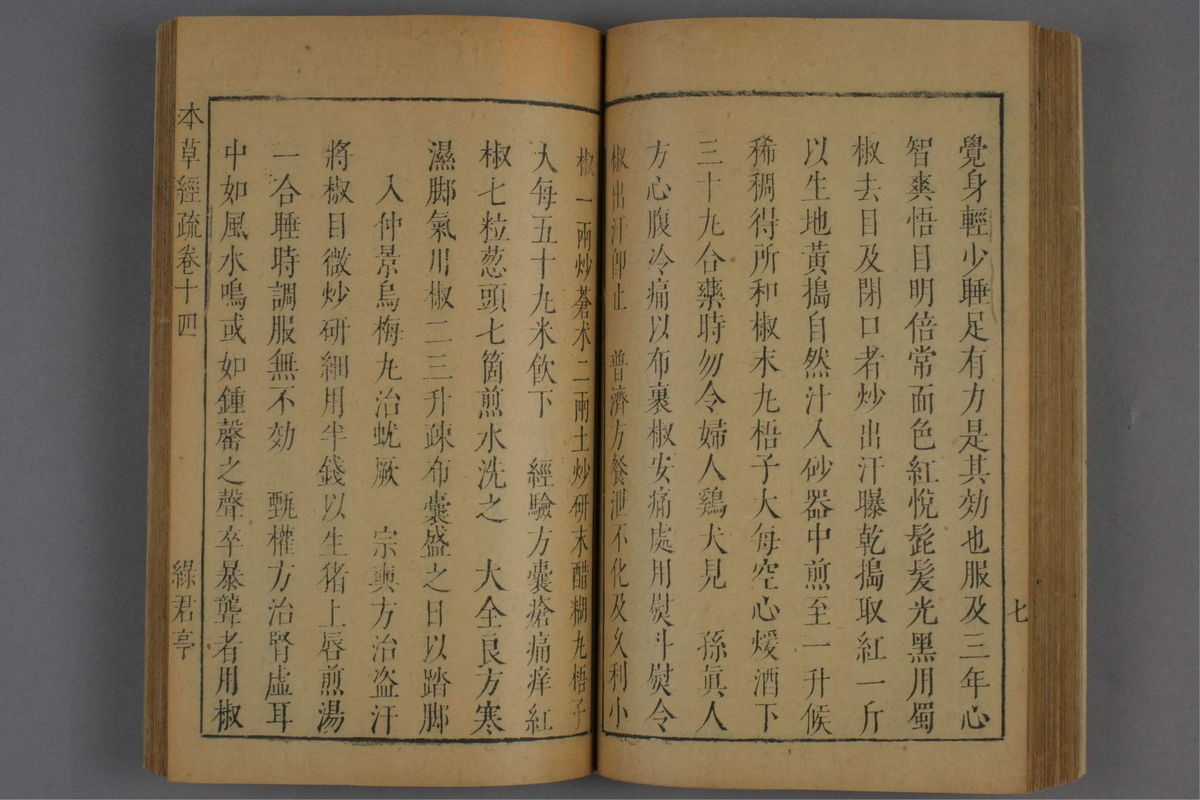 覺身輕少睡足有力是其効也服及三年心
智爽悟目明倍常面色紅悅髭髮光黑用蜀
椒去目及閉口者炒出汗曝乾搗取紅一斤
以生地黃搗自然汁入砂器中煎至一升候
稀稠得所和椒末丸梧子大每空心煖酒下
三十丸合藥時勿令婦人鷄犬見　孫眞人
方心腹冷痛以布裹椒安痛處用熨斗熨令
椒出汗卽止　普濟方餐泄不化及久利小
七
椒一兩炒蒼朮二兩土炒研末醋糊丸梧子
大每五十丸米飮下　經驗方囊瘡痛痒紅
椒七粒葱頭七箇煎水洗之　大全良方寒
濕脚氣川椒二三升疎布囊盛之日以踏脚
入仲景烏梅丸治蚘厥　宗奭方治盜汗
將椒目微炒研細用半錢以生猪上唇煎湯
一合睡時調服無不効　甄權方治腎虛耳
中如風水鳴或如鍾磬之聲卒暴聾者用椒
本草經疏卷十四
綠君亭